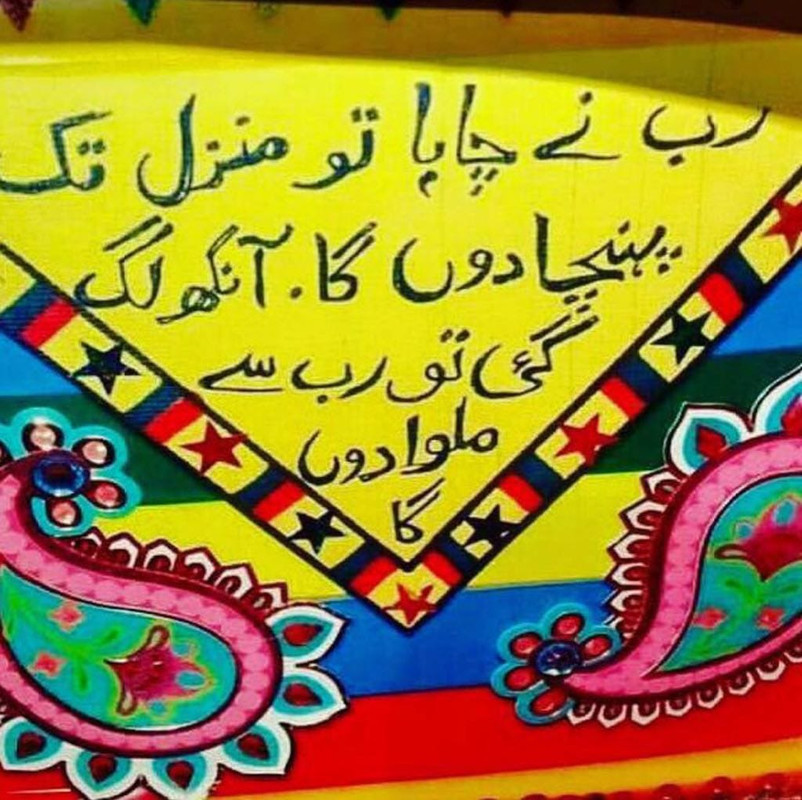 رب نے چاہا تو منزل تک
پہنچا دوں گا۔ آنکھ لگ
گئی تو رب سے
ملوا دوں
گا